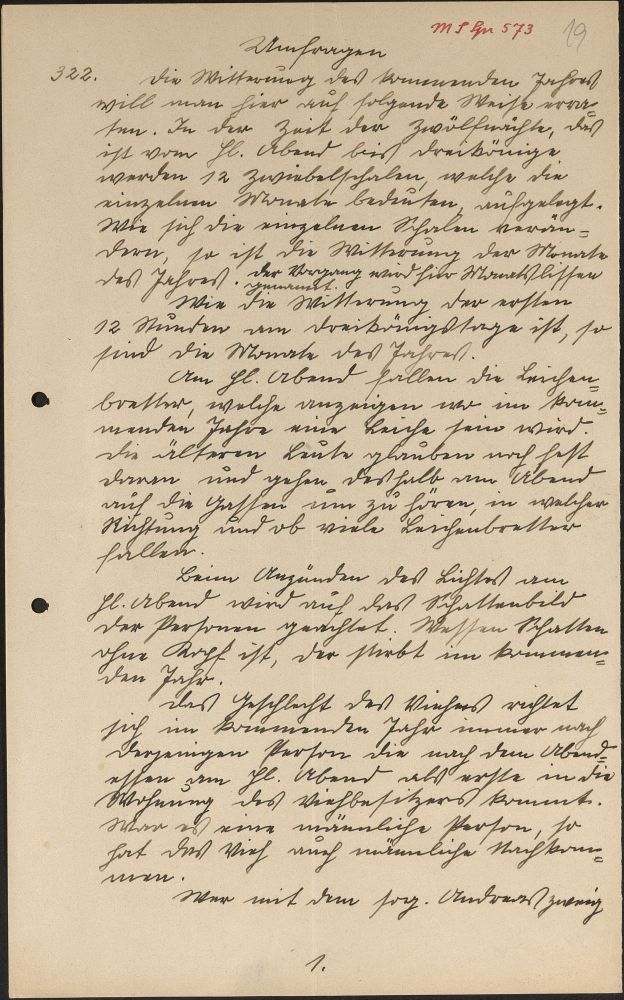 MS Gn 573 19
Umfragen
322. Die Witterung des kommenden Jahres
will man hier auf folgende Weise erra-
ten. In der Zeit der Zwölfnächte, das
ist vom Hl. Abend bis Dreikönige
werden 12 Zwiebelschalen, welche die
einzelnen Monate bedeuten, aufgelegt.
Wie sich die einzelnen Schalen verän=
dern, so ist die Witterung der Monate
des Jahres. Der Vorgang wird hier Monatslissen
genannt.
Wie die Witterung der ersten
12 Stunden am Dreikönigstage ist, so
sind die Monate des Jahres.
Am Hl. Abend fallen die Leichen=
bretter, welche anzeigen wo im kom=
menden Jahre eine Leiche sein wird.
Die älteren Leute glauben noch fest
daran und gehen deshalb am Abend
auf die Gassen um zu hören, in welcher
Richtung und ob viele Leichenbretter
fallen.
Beim Anzünden des Lichtes am
Hl. Abend wird auf das Schattenbild
der Personen geachtet. Wessen Schatten
ohne Kopf ist, der stirbt im kommen=
den Jahr.
Das Geschlecht des Viehes richtet
sich im kommenden Jahr immer nach
derjenigen Person die nach dem Abend=
essen am Hl. Abend als erste in die
Wohnung des Viehbesitzers kommt.
War es eine männliche Person, so
hat das Vieh auch männliche Nachkom=
men.
Wer mit dem sog. Andreaszweig
1.